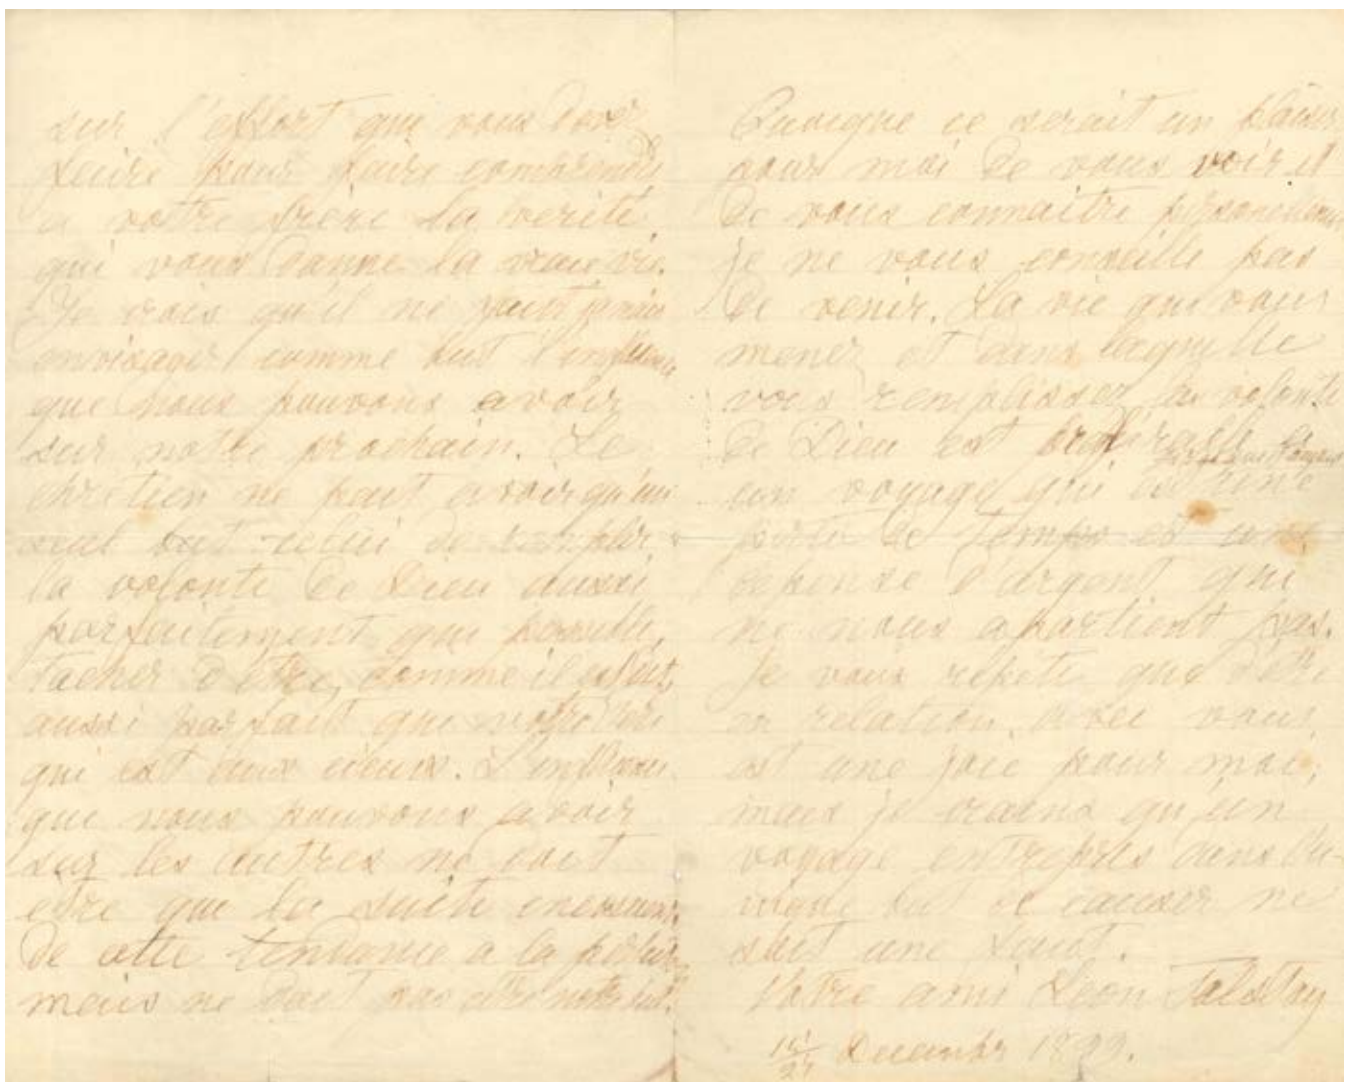 sur l'effort que vous devez
faire pour faire comprendre
a votre frère la verité
qui vous donne la vraie vie.
Je crois qu'il ne faut jamais
envisager comme but l'influence
que nous pouvons avoir
sur notre prochain. Le
chretien ne peut avoir qu'un
seul but celui de remplir
la volonte de Dieu aussi
parfaitement que possible,
tacher d'etre, comme il est dit,
aussi parfait que notre Père
qui est aux cieux. L'influence
que nous pouvons avoir
sur les autres ne doit
etre que la suite
de cette tendance a la
mais ne doit pas etre notre but.
Quoique ce serait un plaisir
pour moi de vous voir et
de vous connaitre personellement
je ne vous conseille pas
de venir. La vie que vous
menez et dans laquelle
vous remplissez la volonté
de Dieu est
un voyage qui est une
perte de temps et une
depense d'argent qui
ne nous apartient pas.
Je vous repete que d'etre
en relation avec vous
est une joie pour moi,
mais je crains qu'un
voyage entrepris dans l'u-
nique but de causer ne
soit une faute.
Votre ami Léon Tolstoy
Decembre 1899.